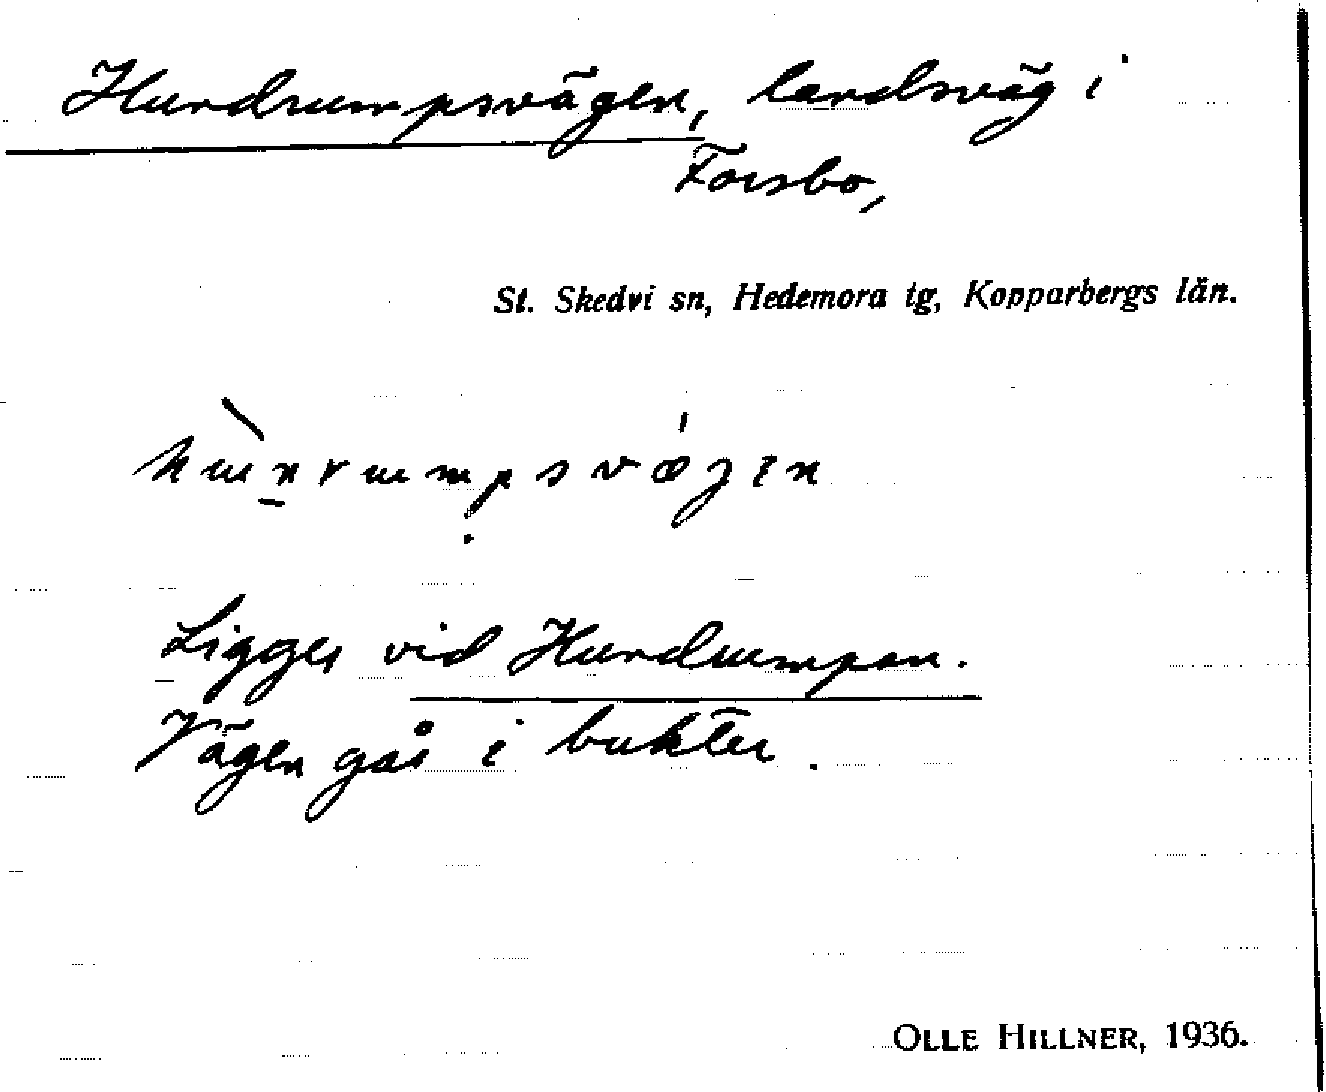 Hundrumpsvägen, landsväg i
Forsbo,
St. Skedvi sn, Hedemora tg, Kopparbergs län.
Ligger vid Hundrumpan.
Vägen går i bukter.
OLLE HILLNER, 1936.